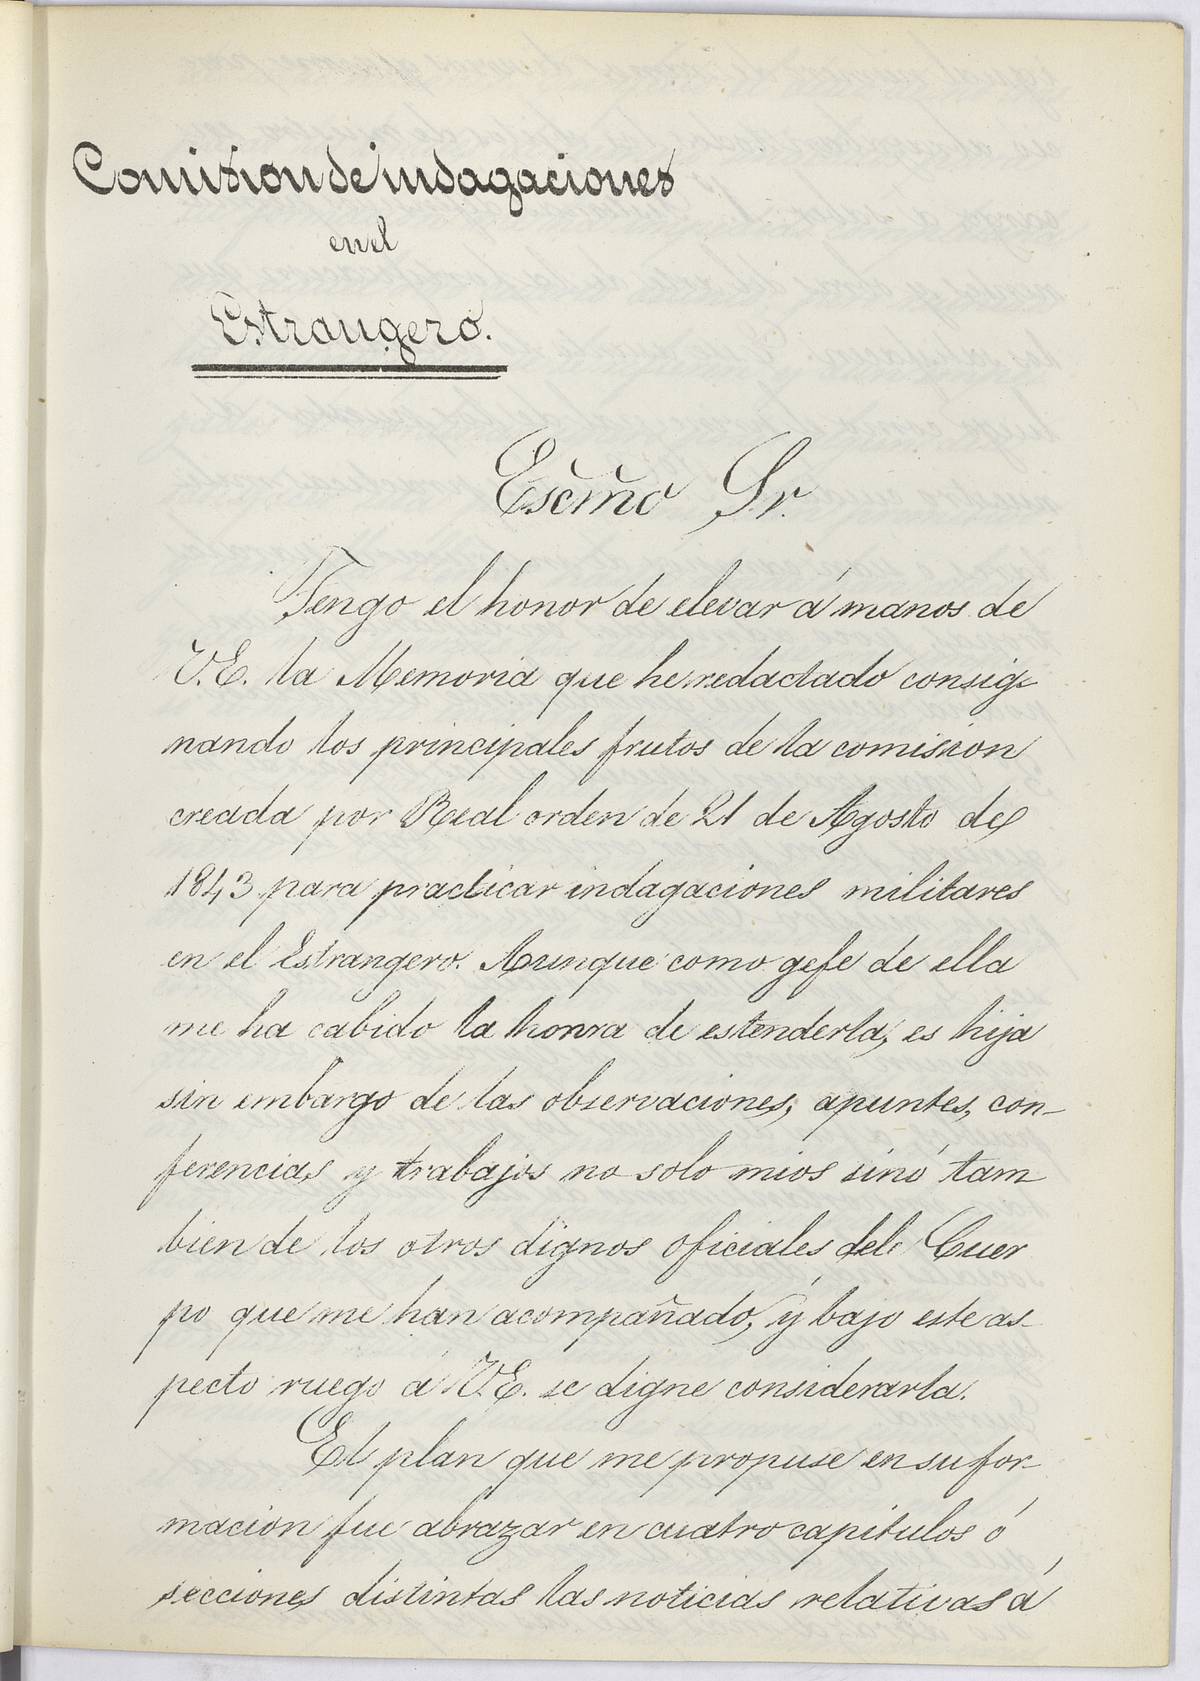 Comision de indagaciones
en el
Estrangero.
Escmo Sr.
Tengo el honor de elevar á manos de
V.E. la Memoria que he redactado consig-
nando los principales frutos de la comision
creada por Real orden de 21 de Agosto de
1843 para practicar indagaciones militares
en el Estrangero. Aunque como gefe de ella
me ha cabido la honra de estenderla, es hija
sin embargo de las observaciones, apuntes, con-
ferencias y trabajos no solo mios sinó tam
bien de los otros dignos oficiales del Cuer
po que me han acompañado, y bajo este as-
pecto ruego á V.E. se digne considerarla.
El plan que me propuse en su for-
macion fue abrazar en cuatro capitulos ó
secciones distintas las noticias relativas á